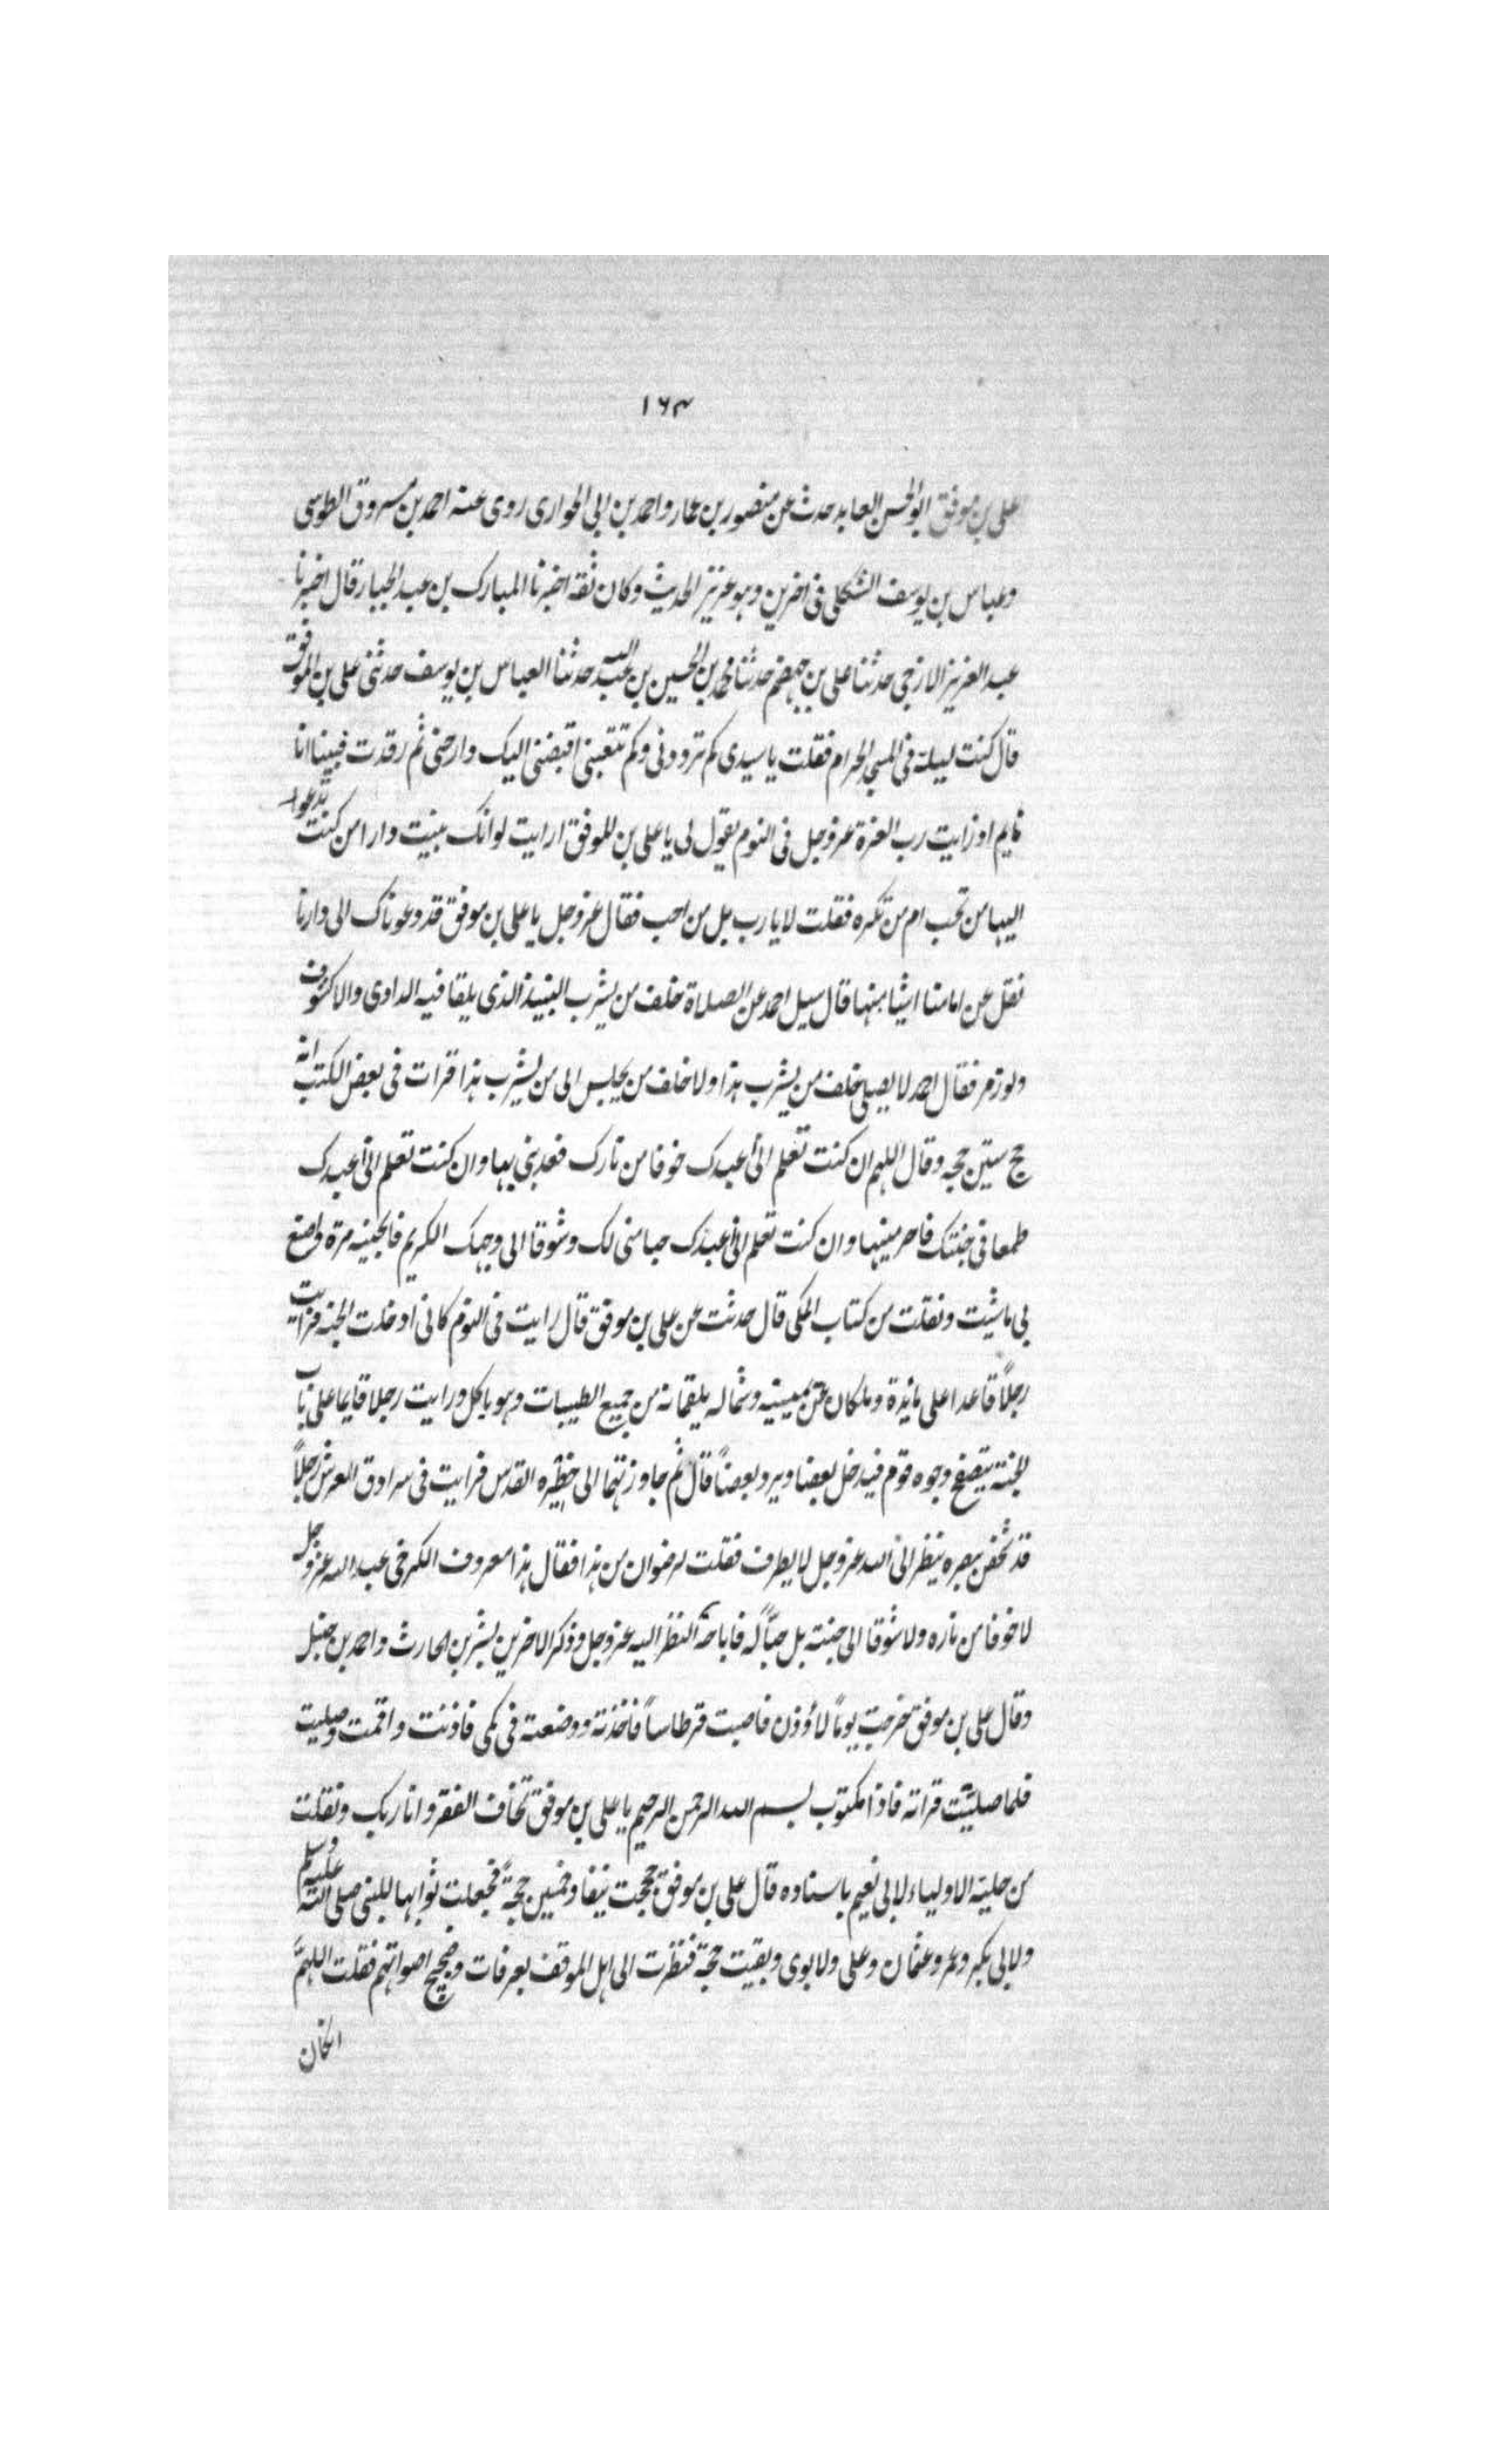 ١٦٣
علي بن موفق ابو الحسن العابد حدث عن منصور بن عمار واحمد بن ابي الحواري روى عنه احمد بن مسروق الطوسي
وعباس بن يوسف الشكلي في اخرين وهو عزيز الحديث وكان ثقة اخبرنا المبارك بن عبد الجبار قال اخبرنا
عبد العزيز الازجي حدثنا علي بن جهضم حدثنا محمد بن الحسين بن عبد الله حدثنا العباس بن يوسف حدثني علي بن الموفق
قال كنت ليلة في المسجد الحرام فقلت يا سيدي كم ترددني وكم تتعبني اقبضني اليك وارحني ثم رقدت فبينا انا
نايم اذ رايت رب العزة عز وجل في النوم يقول لي يا علي بن الموفق ارايت لو انك بنيت دارا من كنت تدعوا
اليها من تحب ام من تكره فقلت لا يا رب بل من احب فقال عز وجل يا علي بن موفق قد دعوناك الى دارنا
نقل عن امامنا اشيا منها قال سيل احمد عن الصلاة خلف من يشرب النبيذ الذي يلقا فيه الداوى والاكشوف
ولوزم فقال احمد لا يصلي خلف من يشرب هذا ولا خلف من يجلس الى من يشرب هذا قرات في بعض الكتب انه
حج ستين حجه وقال اللهم ان كنت تعلم اني أعبدك خوفا من نارك فعذبني بها وان كنت تعلم اني أعبدك
طمعا في جنتك فاحرمنيها وان كنت تعلم اني أعبدك حبا مني لك وشوقا الى وجهك الكريم فابحنيه مرة واصنع
بي ما شيت ونقلت من كتاب المكي قال حدثت عن علي بن موفق قال رايت في النوم كاني ادخلت الجنة فرايت
رجلاً قاعدا على مائدة وملكان عن يمينه وشماله يلقمانه من جميع الطيبات وهو ياكل ورايت رجلا قايما على باب
الجنة يتصفح وجوه قوم فيدخل بعضا ويرد بعضاً قال ثم جاوزتهما الى حظيره القدس فرايت في سرادق العرش رجلاً
قد شخص ببصره ينظر الى الله عز وجل لا يطرف فقلت لرضوان من هذا فقال هذا معروف الكرخي عبد الله عز وجل
لا خوفا من ناره ولا شوقا الى جنته بل حبّاً له فاباحه النظر اليه عز وجل وذكر الاخرين بشر بن الحارث واحمد بن حنبل
وقال علي بن موفق خرجت يوماً لاؤذن فاصبت قرطاساً فاخذته ووضعته في كمي فاذنت واقمت وصليت
فلما صليت قراته فاذا مكتوب بسم الله الرحمن الرحيم يا علي بن موفق تخاف الفقر وانا ربك ونقلت
من حلية الاولياء لابي نعيم باسناده قال علي بن موفق حججت نيفا وخمسين حجةً فجعلت ثوابها للنبي صلى الله عليه وسلم
ولابي بكر وعمر وعثمان وعلي ولابوى وبقيت حجة فنظرت الى اهل الموقف بعرفات وضجيج اصواتهم فقلت اللهمّ
ان كان